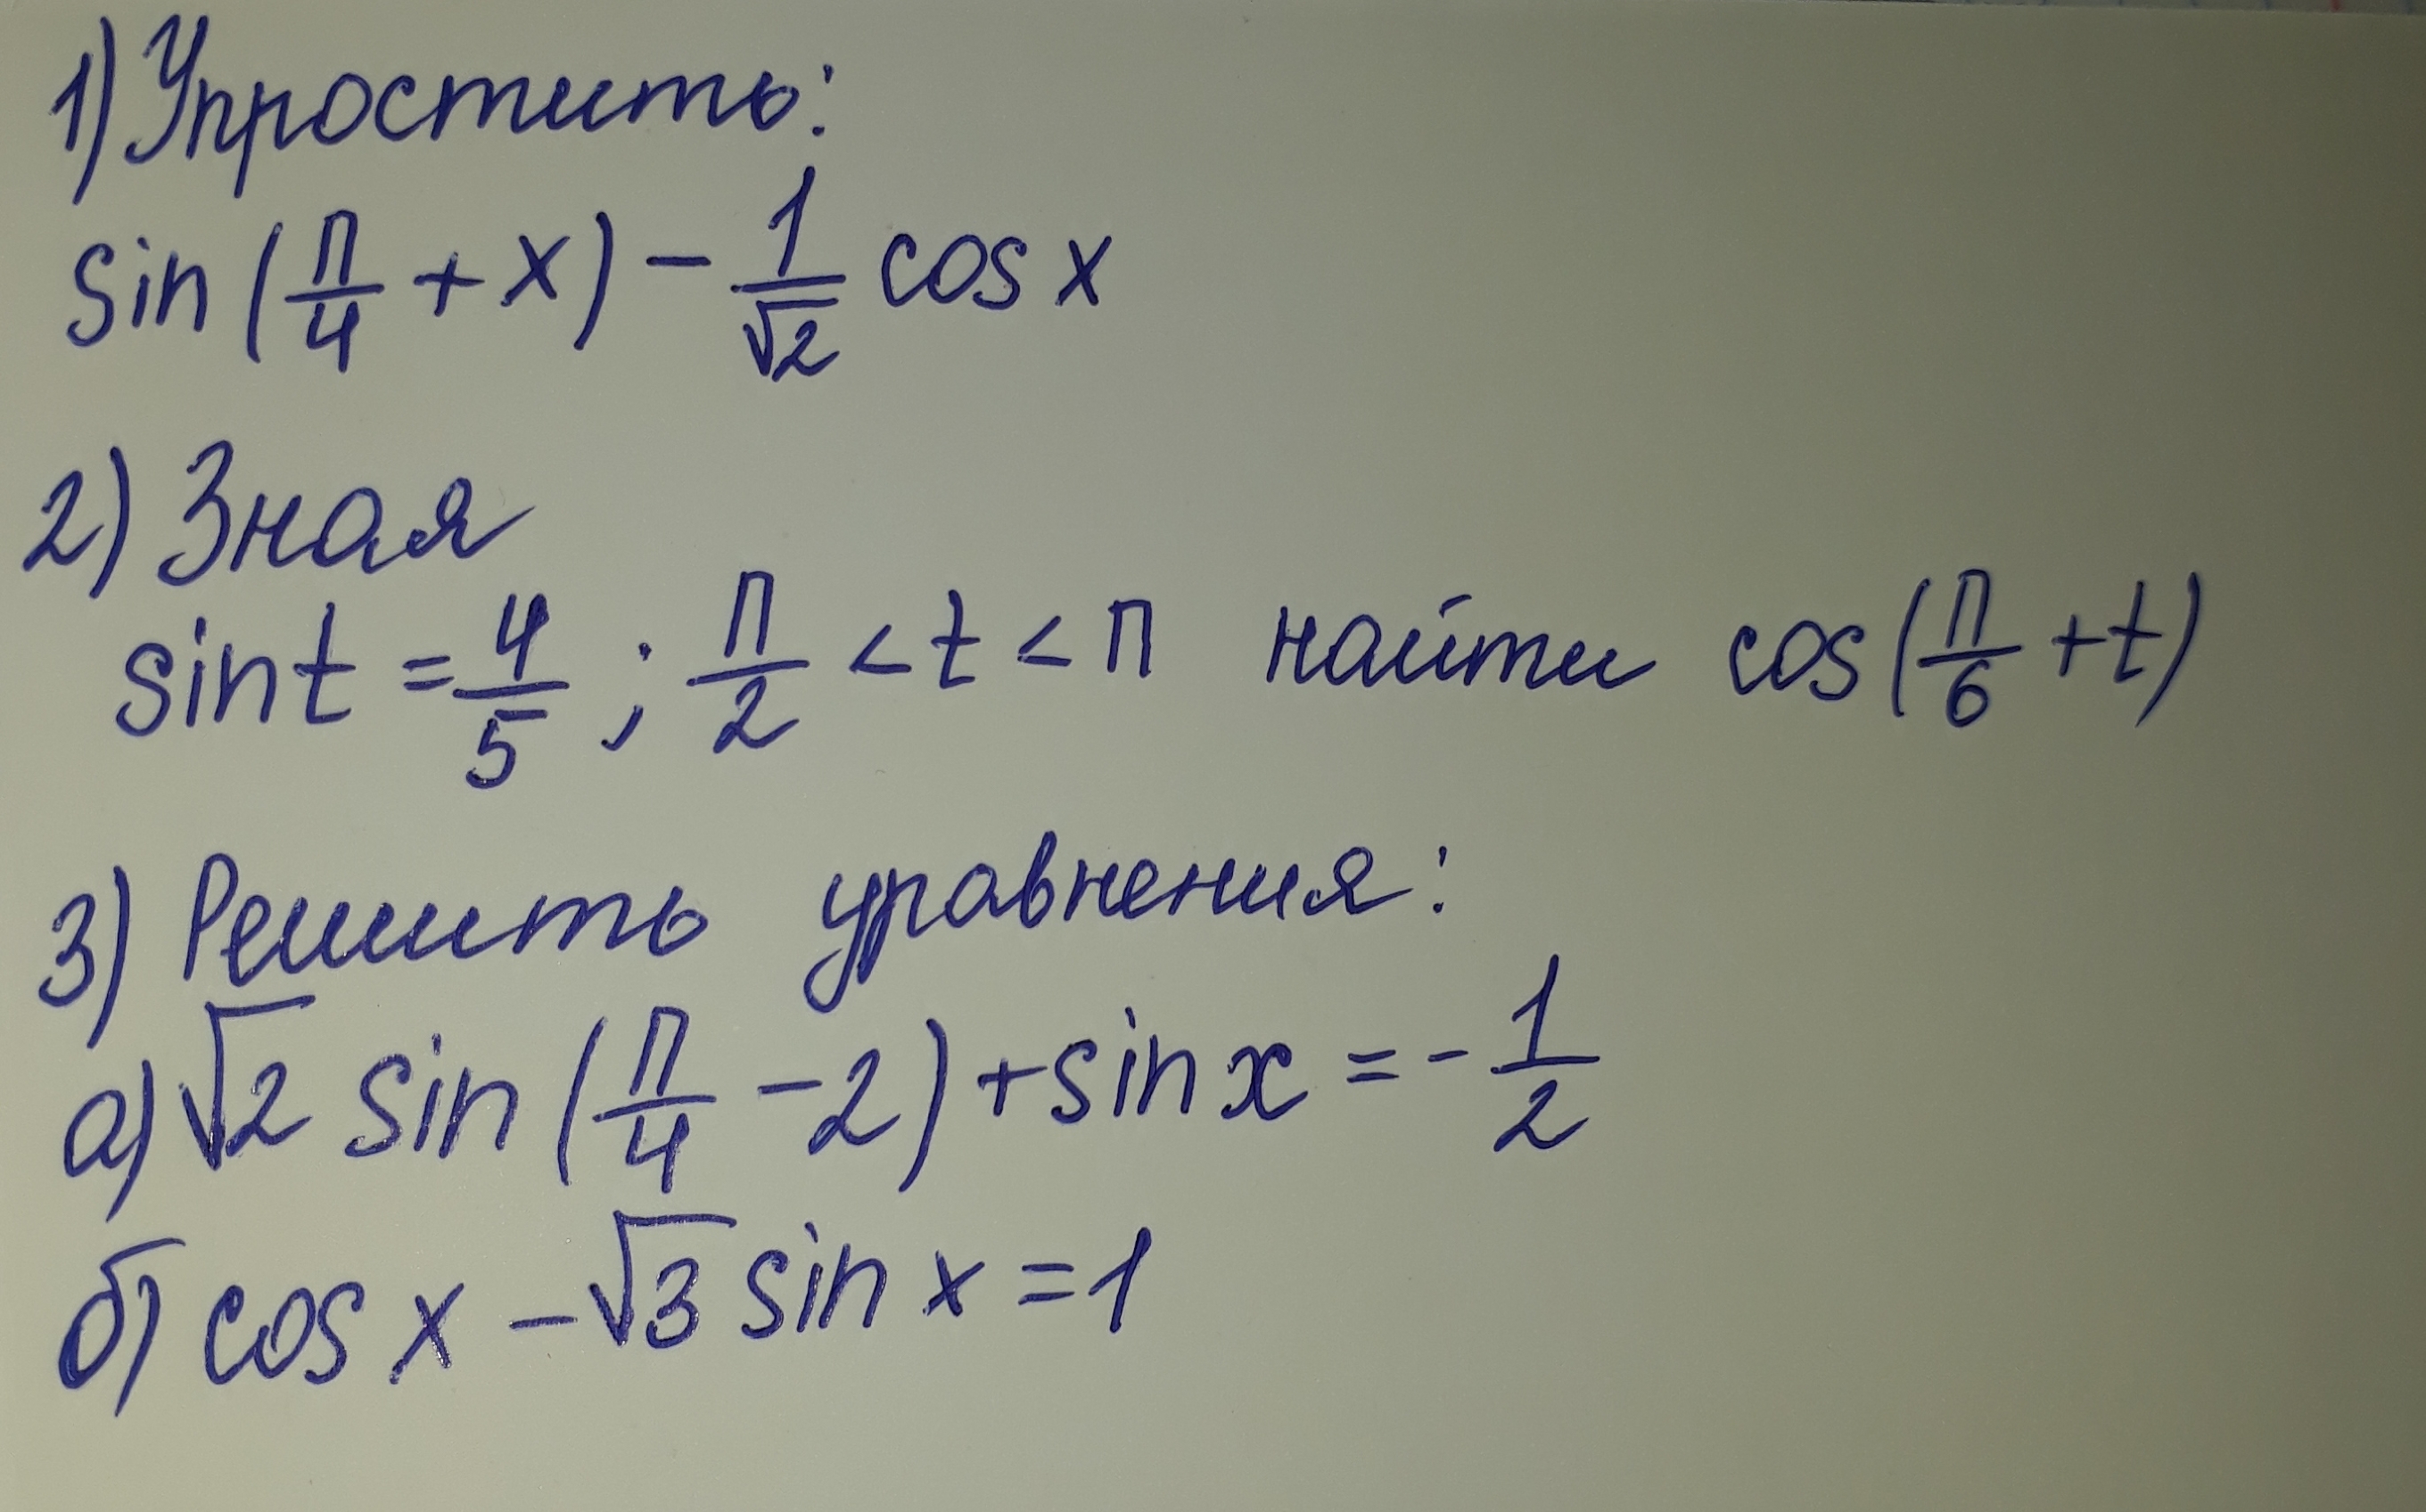 1) Упростить:
sin(π/4 + x) - 1/√2 cos x
2) Зная
sin t = 4/5 ; π/2 < t < π найти cos(π/6 + t)
3) Решить уравнения:
а) √2 sin(π/4 - 2) + sin x = - 1/2
б) cos x - √3 sin x = 1